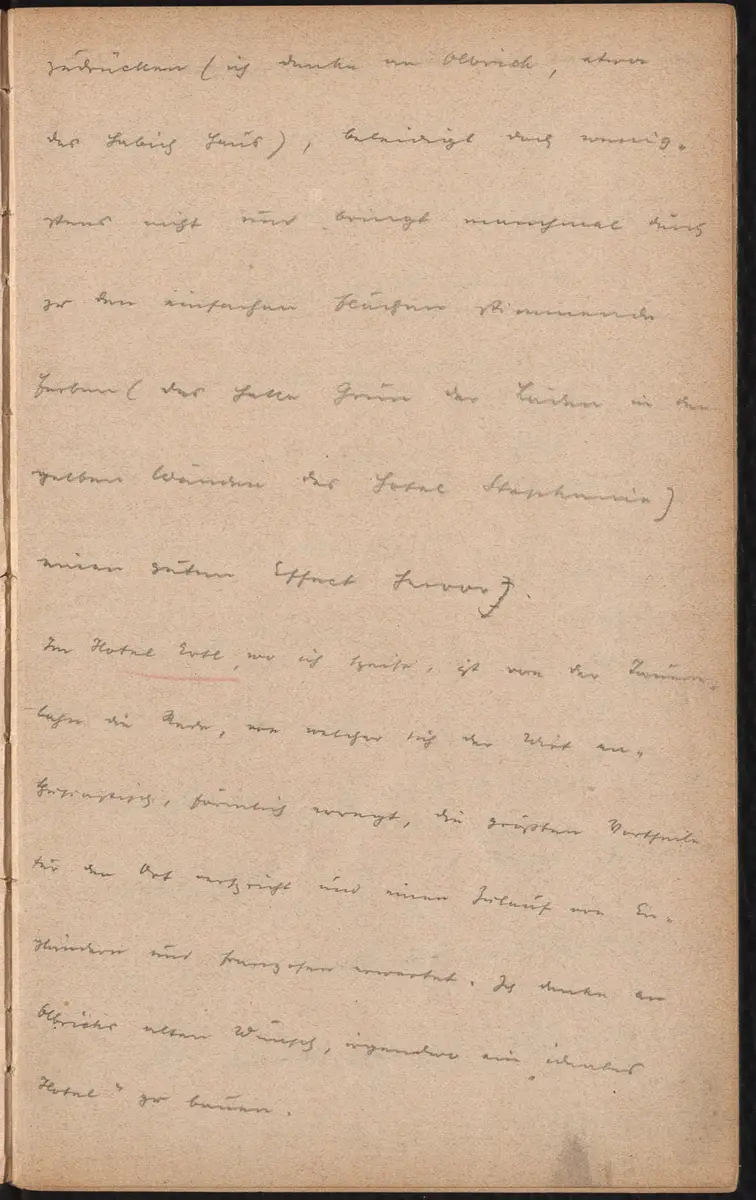 zudrücken (ich denke an Olbrich, etwa
das Habich Haus), beleidigt doch wenig-
stens nicht und bringt manchmal durch
zu den einfachen Flächen stimmende
Farben (das helle Grün der Läden in den
gelben Wänden des Hotel Stephanie)
einen guten Effect hervor].
Im Hotel Ertl, wo ich speise, ist von der Tauern-
bahn die Rede, von welcher sich der Wirt en-
thusiastisch, förmlich erregt, die größten Vortheile
für den Ort verspricht und einen Zulauf von En-
gländern und Franzosen erwartet. Ich denke an
Olbrichs alten Wunsch, irgendwo ein „ideales
Hotel“ zu bauen.